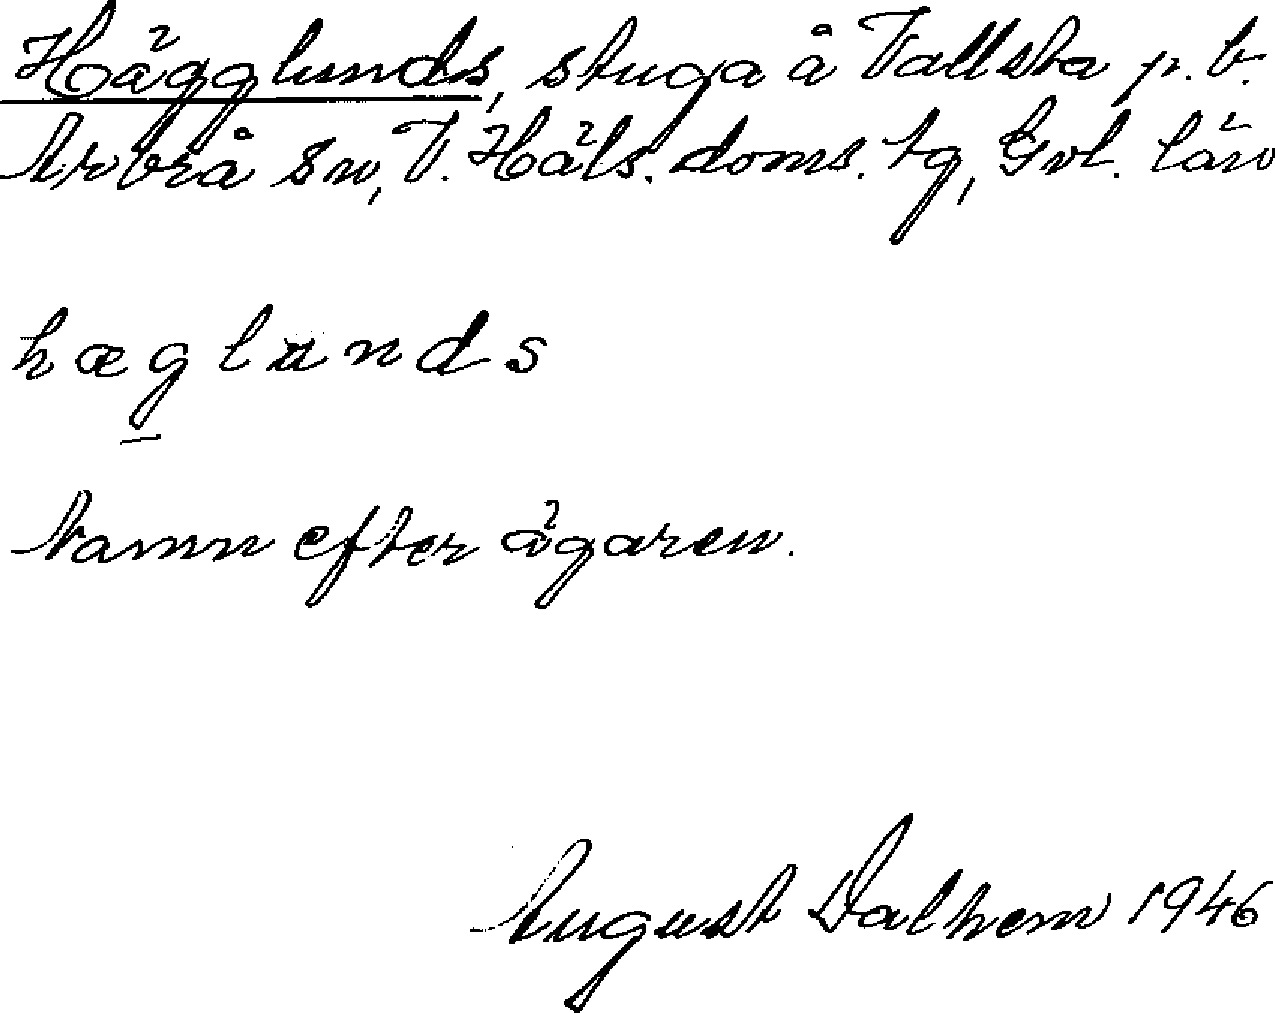 Hägglunds, stuga å Vallsta p. b.
Arbrå sn, V. Häls. doms. tg, Gvl. län
hæglunds
Namn efter ägaren.
August Dalhem 1946